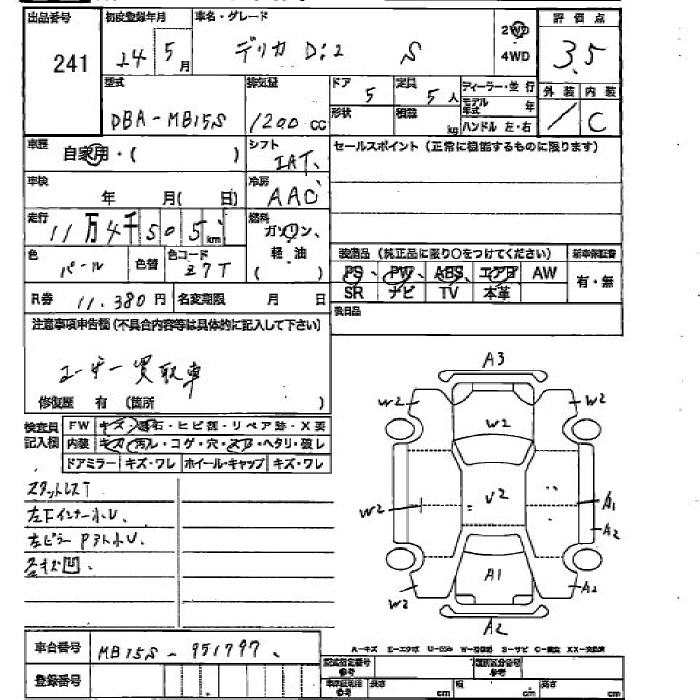 出品番号 初度登録年月 車名・グレード 評価点
241 24 5月 デリカ D:2 S 2WD 3.5
4WD
型式 排気量 ドア 定員 ディーラー・並行 外装 内装
DBA-MB15S 1200cc 5 5人 モデル年式 年 / C
形状 積載 kg ハンドル 左・右
車歴 自家用・( ) シフト IAT セールスポイント (正常に機能するものに限ります)
車検 年 月( 日) 冷房 AAC
走行 11万4千505km 燃料 ガソリン、
軽油
( )
色 パール 色替 色コード Z7T 装備品 (純正品に限り○をつけてください) 新車保証書
PS PW ABS エアB AW 有・無
R券 11,380円 名変期限 月 日 SR ナビ TV 本革
注意事項申告欄 (不具合内容等は具体的に記入して下さい)
ユーザー買取車
修復歴 有 (箇所 )
検査員記入欄 FW キズ・飛石・ヒビ割・リペア跡・X要
内装 キズ・汚れ・コゲ・穴・スレ・ヘタリ・破レ
ドアミラー キズ・ワレ ホイール・キャップ キズ・ワレ
スタットレスT
左ドインナー小U.
左ピラー Pアト小U
各キズ凹.
A3
W2 W2
W2
W2 U2 A1
A2
A1
W2 A2
A2
車台番号 MB15S-951797
登録番号
A-キズ E-エクボ
長さ cm 幅 cm 高さ cm